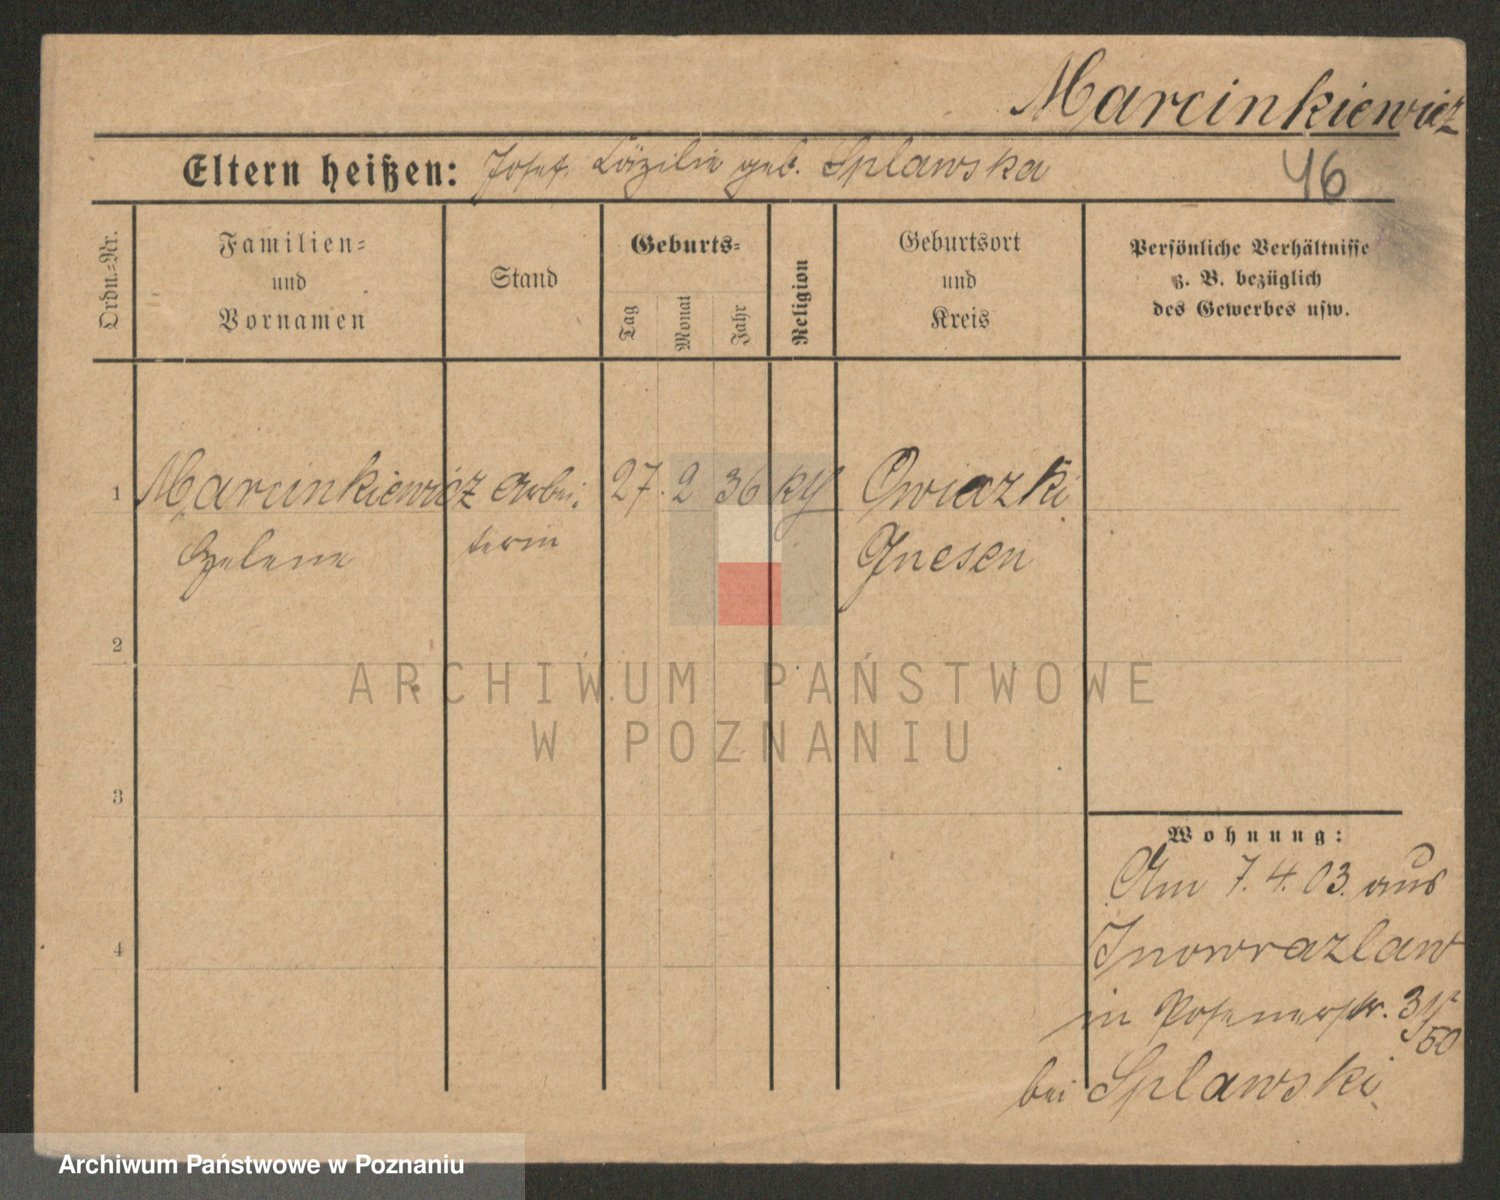 Marcinkiewicz
Eltern heißen: Josef. Cäzilie geb. Splawska
46
Ordn.-Nr.
Familien-
und
Vornamen
Stand
Geburts-
Tag
Monat
Jahr
Religion
Geburtsort
und
Kreis
Persönliche Verhältnisse
z. B. bezüglich
des Gewerbes usw.
1 Marcinkiewicz Arbei- 27. 2 36 Gwiazki
Helene terin Gnesen
2
ARCHIWUM PAŃSTWOWE
W POZNANIU
3
Wohnung:
Am 7.4.03. aus
4 Inowrazlaw
in Posenerstr. 31
50
bei Splawski
Archiwum Państwowe w Poznaniu